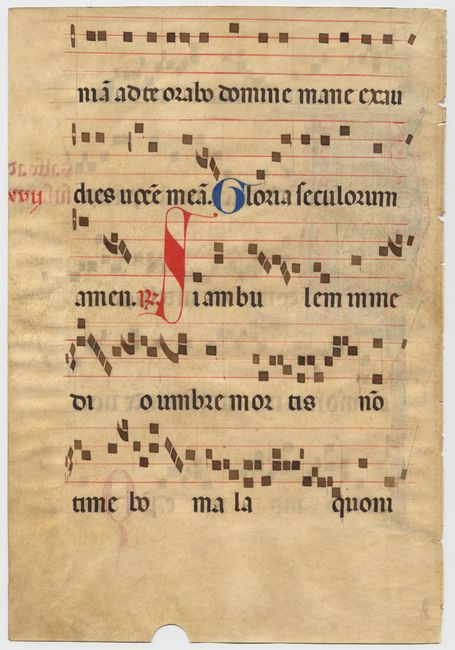 niā ad te orabo domine mane exau
dies uocē meā. Gloria seculorum
amen. R. Si ambu lem in me
di o umbre mor tis nō
time bo ma la quoni